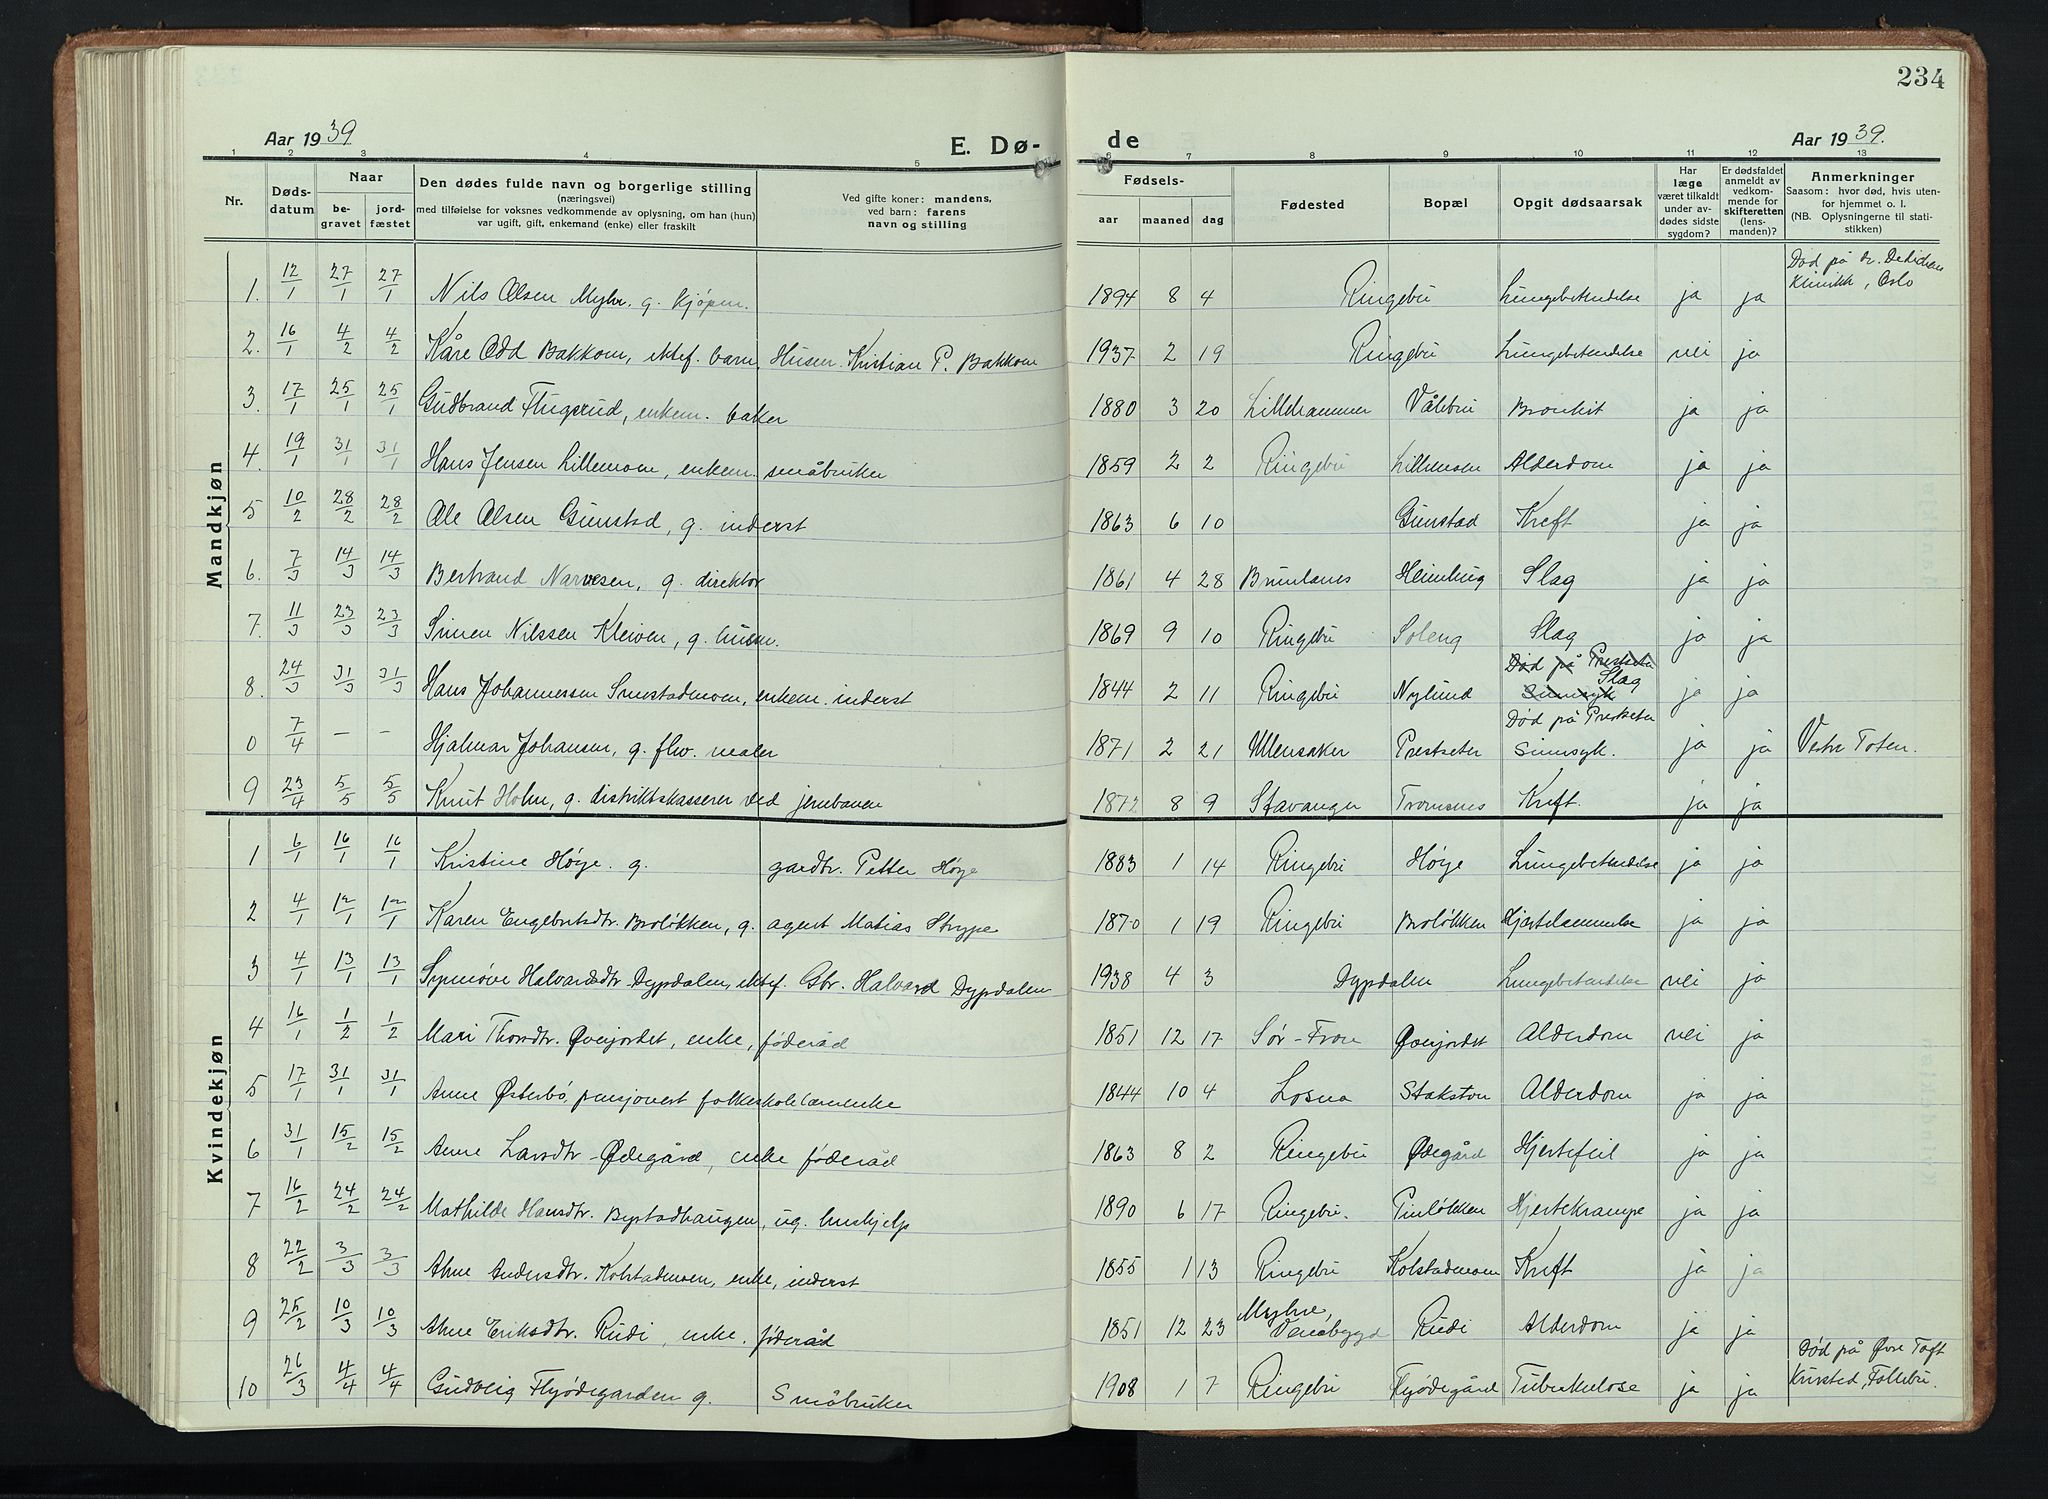 234
Aar 1939 E. Dø- de Aar 1939.
1 2 3 4 5 6 7 8 9 10 11 12 13
Nr. Dødsdatum Naar begravet jordfæstet Den dødes fulde navn og borgerlige stilling (næringsvei) med tilføielse for voksnes vedkommende av oplysning, om han (hun) var ugift, gift, enkemand (enke) eller fraskilt Ved gifte koner: mandens, ved barn: farens navn og stilling Fødsels- aar maaned dag Fødested Bopæl Opgit dødsaarsak Har læge været tilkaldt under avdødes sidste sygdom? Er dødsfaldet anmeldt av vedkommende for skifteretten (lensmanden)? Anmerkninger Saasom: hvor død, hvis utenfor hjemmet o. l. (NB. Oplysningerne til statistikken)
Mandkjøn
1. 12/1 27/1 27/1 Nils Olsen Myhr. g. kjøpm. 1894 8 4 Ringebu Lungebetendelse ja ja Død på dr. Dedichens Klinikk, Oslo
2. 16/1 4/2 4/2 Kåre Odd Bakkom, ektef. barn, Husm. Kristian P. Bakkom 1937 2 19 Ringebu Lungebetendelse nei ja
3. 17/1 25/1 25/1 Gudbrand Flugsrud, enkem. baker 1880 3 20 Lillehammer Vålebru Bronkit ja ja
4. 19/1 31/1 31/1 Hans Jensen Lillemoen, enkem. småbruker 1859 2 2 Ringebu Lillemoen Alderdom ja ja
5 10/2 28/2 28/2 Ole Olsen Gunstad, g. inderst 1863 6 10 Gunstad Kreft ja ja
6. 7/3 14/3 14/3 Bertrand Narvesen, g. direktør 1861 4 28 Brunlanes Heimhug Slag ja ja
7. 11/3 23/3 23/3 Simen Nilssen Kleiven, g. husm. 1869 9 10 Ringebu Soleng Slag ja ja
8. 24/3 31/3 31/3 Hans Johannessen Sunstadmoen, enkem. inderst 1844 2 11 Ringebu Nylund Død på Prestseter Sinnsyk Slag ja ja
0 7/4 – – Hjalmar Johansen, g. fhv. maler 1871 2 21 Ullensaker Prestseter Død på Prestseter Sinnsyk. ja ja Vestre Toten.
9 23/4 5/5 5/5 Knut Holm, g. distriktskasserer ved jernbanen 1872 8 9 Stavanger Tromsnes Kreft. ja ja
Kvindekjøn
1 6/1 16/1 16/1 Kristine Høye. g. gardbr. Petter Høye 1883 1 14 Ringebu Høye Lungebetendelse ja ja
2 4/1 12/1 12/1 Karen Engebretsdtr. Broløkken, g. agent Matias Strype 1870 1 19 Ringebu Broløkken Hjertelammelse ja ja
3 4/1 13/1 13/1 Synnøve Halvardsdtr Dypdalen, ektef. Gbr. Halvard Dypdalen 1938 4 3 Dypdalen Lungebetendelse nei ja
4 16/1 1/2 1/2 Mari Thorsdtr. Øverjordet, enke, føderåd 1851 12 17 Sør-Fron Øverjordet Alderdom nei ja
5 17/1 31/1 31/1 Anne Østerbø, pensjonert folkeskolelærerenke 1844 10 4 Losna Stakston Alderdom ja ja
6 31/1 15/2 15/2 Anne Larsdtr Ødegård, enke føderåd 1863 8 2 Ringebu Ødegård Hjertefeil ja ja
7 16/2 24/2 24/2 Mathilde Hansdtr. Bystadhaugen, ug. hushjelp 1890 6 17 Ringebu. Pinløkken Hjertekrampe ja ja
8 22/2 3/3 3/3 Anne Andersdtr. Kolstadmoen, enke, inderst 1855 1 13 Ringebu Kolstadmoen Kreft ja ja
9 25/2 10/3 10/3 Anne Eriksdtr. Rudi, enke. føderåd 1851 12 23 Myhre, Venabygd Rudi Alderdom ja ja
10 26/3 4/4 4/4 Gudveig Flyødegarden g. Småbruker 1908 1 7 Ringebu Flyødegård Tuberkulose ja ja Død på Øvre Toft Kursted, Follebu.